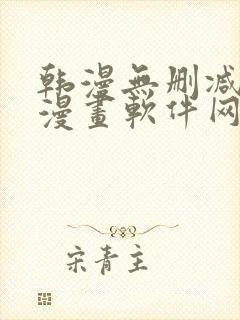 韩漫無删减
漫畫軟件网
宋青主